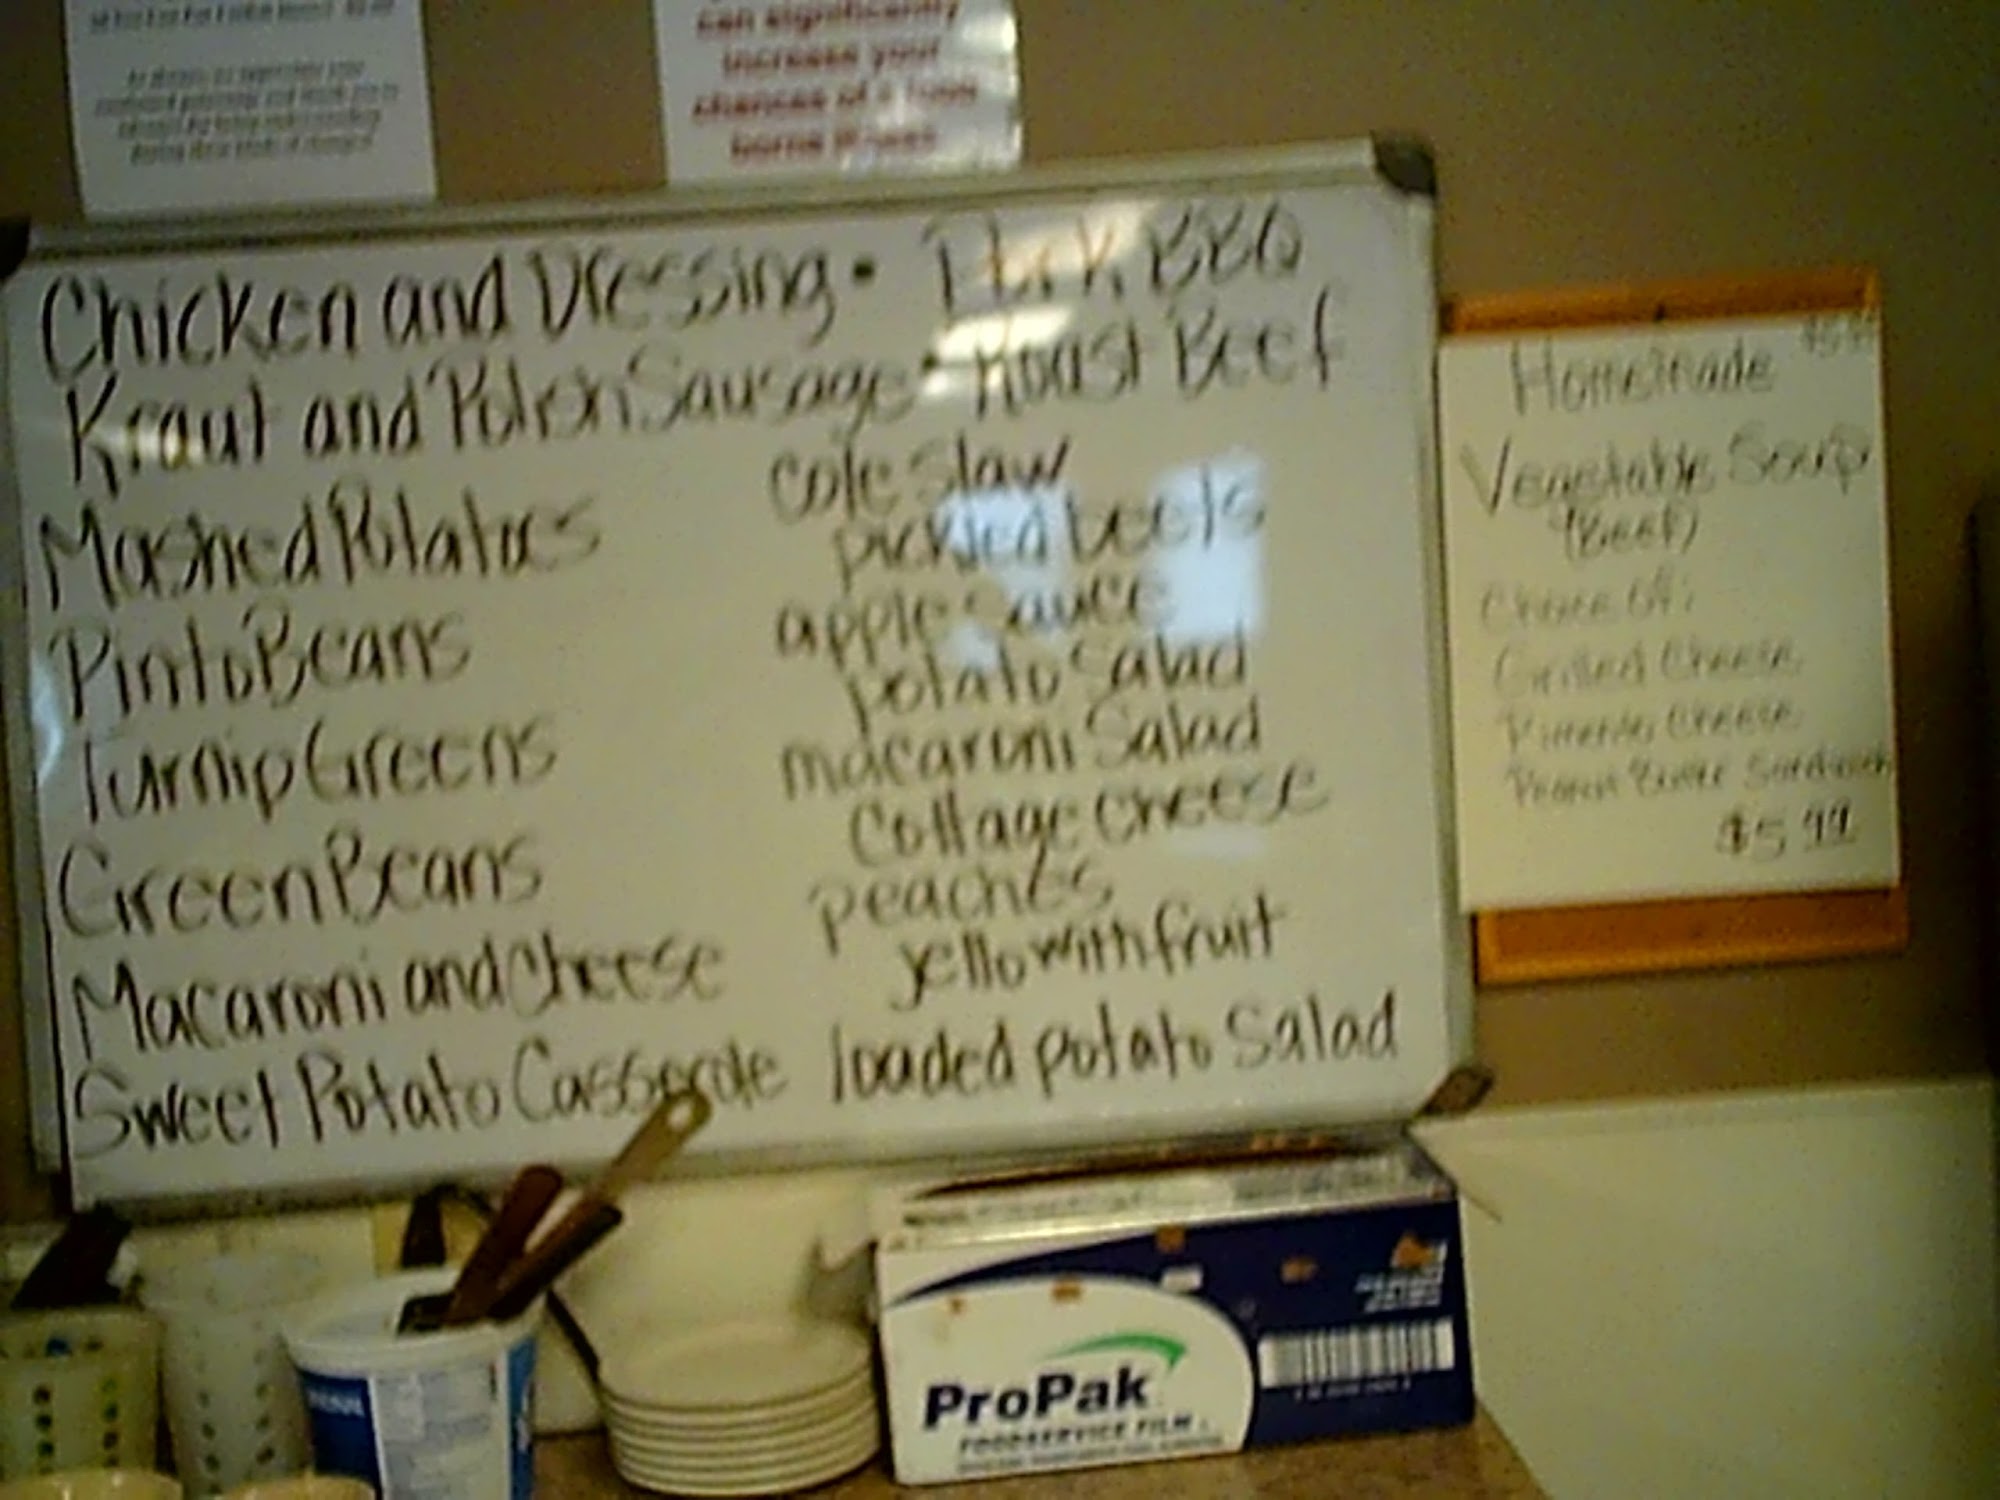 can significantly
increase your
chances of a food
borne illness
Chicken and Dressing • Pork BBQ
Kraut and Polish Sausage • Roast Beef
Mashed Potatoes
Pinto Beans
Turnip Greens
Green Beans
Macaroni and Cheese
Sweet Potato Casserole
cole slaw
pickled beets
apple sauce
potato salad
macaroni Salad
Cottage cheese
peaches
jello with fruit
loaded potato Salad
Homemade
Vegetable Soup
(Beef)
Choice of:
Grilled Cheese
Pimento Cheese
Peanut Butter Sandwich
$5.99
ProPak
FOODSERVICE FILM